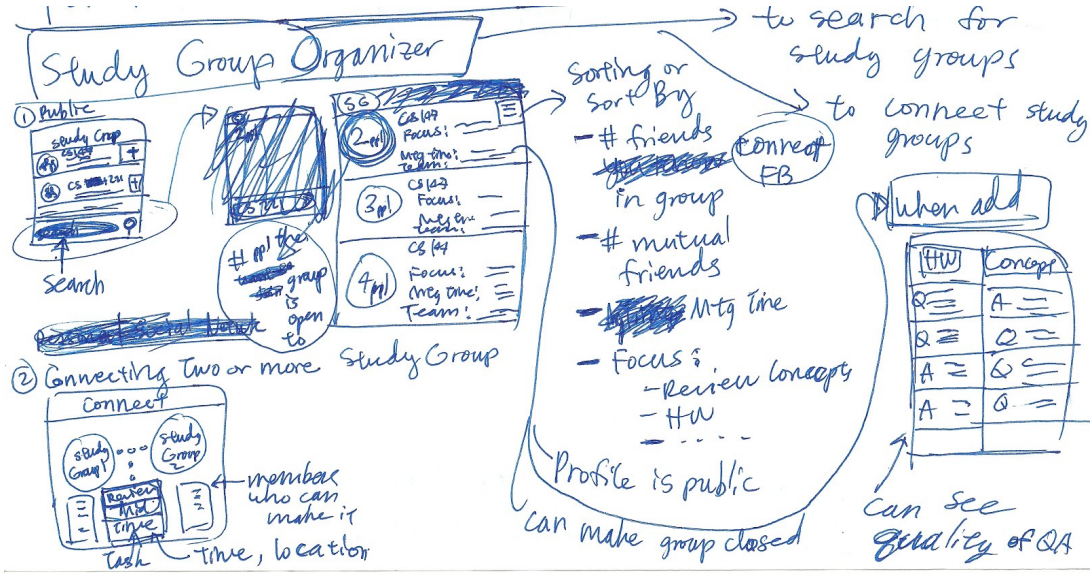 Study Group Organizer
to search for
study groups
to connect study
groups
① Public
Study Group
CS147
+
CS
+
Search
SG
2 ppl
CS147
Focus:
Mtg time:
Team:
3 ppl
CS147
Focus:
Mtg time:
Team:
4 ppl
CS147
Focus:
Mtg time:
Team:
# ppl the
group
is
open
to
Sorting or
Sort By
- # friends
in group
connect
FB
- # mutual
friends
- Mtg time
- Focus:
- Review Concepts
- HW
- . . . .
Profile is public
can make group closed
when add
HW
Concept
Q
A
Q
Q
A
Q
A
Q
can see
quality of QA
② Connecting Two or more Study Group
Connect
Study
Group 1
...
Study
Group
2
Review
Mid
Time
Task
Time, location
members
who can
make it